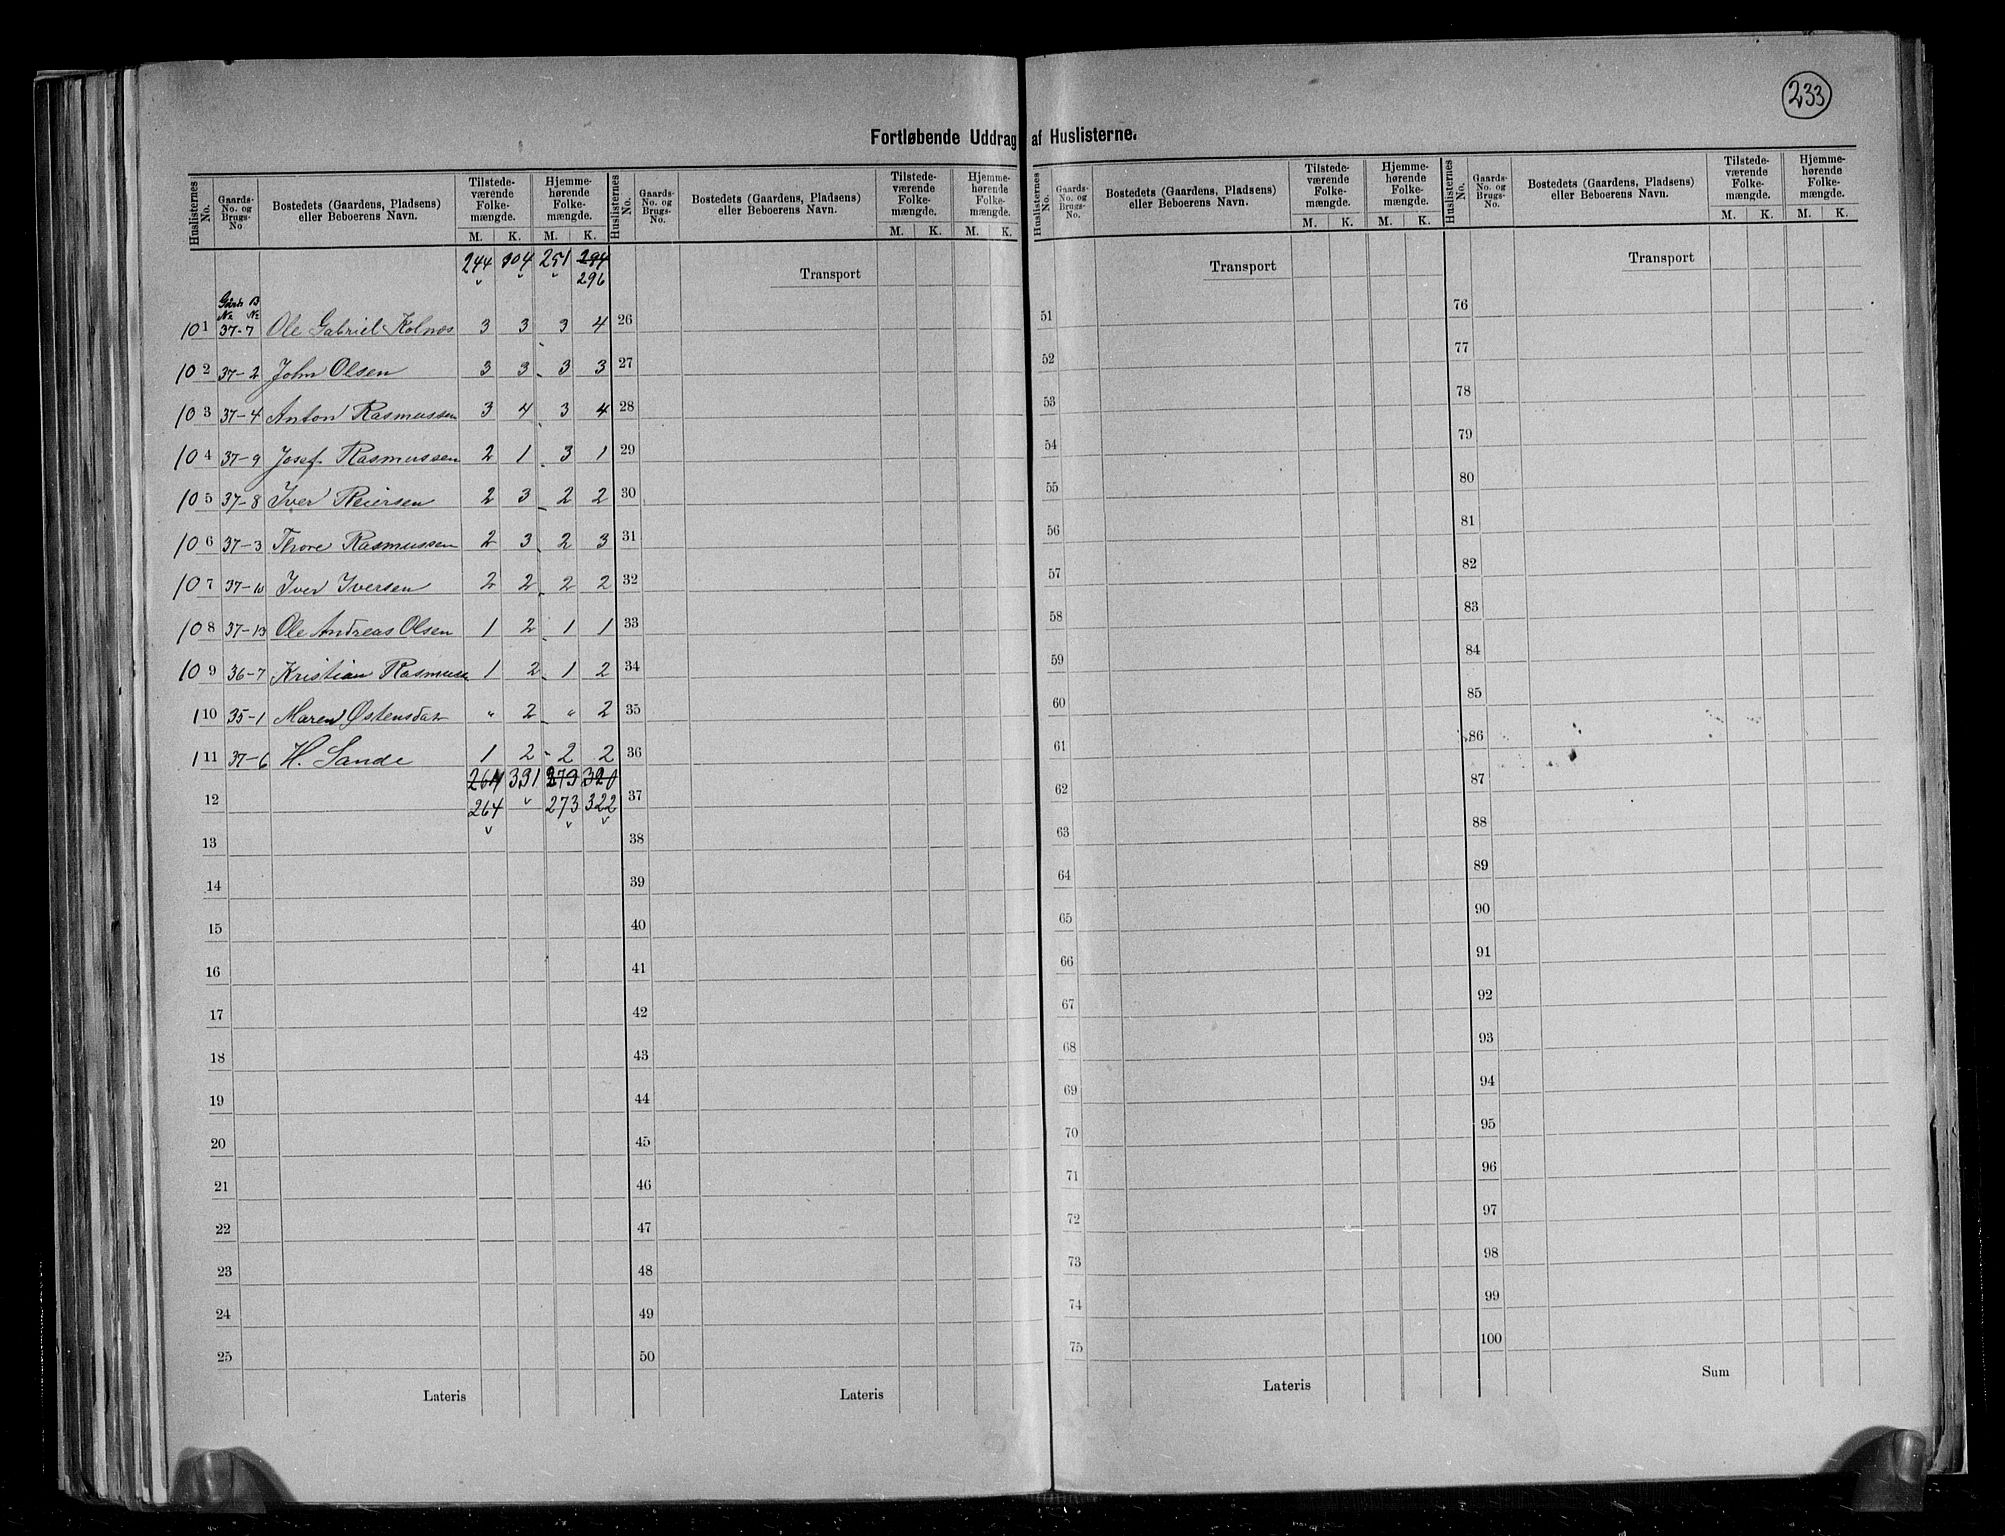 233
Fortløbende Uddrag af Huslisterne.
Huslisternes No. Gaards-No. og Brugs-No Bostedets (Gaardens, Pladsens) eller Beboerens Navn. Tilstedeværende Folkemængde. M. K. Hjemmehørende Folkemængde. M. K.
Huslisternes No. Gaards-No. og Brugs-No. Bostedets (Gaardens, Pladsens) eller Beboerens Navn. Tilstedeværende Folkemængde. M. K. Hjemmehørende Folkemængde. M. K.
Huslisternes No. Gaards-No. og Brugs-No. Bostedets (Gaardens, Pladsens) eller Beboerens Navn. Tilstedeværende Folkemængde. M. K. Hjemmehørende Folkemængde. M. K.
Huslisternes No. Gaards-No. og Brugs-No. Bostedets (Gaardens, Pladsens) eller Beboerens Navn. Tilstedeværende Folkemængde. M. K. Hjemmehørende Folkemængde. M. K.
244 304 251 294 Transport Transport Transport
296
Gaards No. B No.
101 37-7 Ole Gabriel Kolnes 3 3 3 4 26 51 76
102 37-2 John Olsen 3 3 3 3 27 52 77
103 37-4 Anton Rasmussen 3 4 3 4 28 53 78
104 37-9 Josef Rasmussen 2 1 3 1 29 54 79
105 37-8 Iver Reiersen 2 3 2 2 30 55 80
106 37-3 Thore Rasmussen 2 3 2 3 31 56 81
107 37-10 Iver Iversen 2 2 2 2 32 57 82
108 37-13 Ole Andreas Olsen 1 2 1 1 33 58 83
109 36-7 Kristian Rasmuss 1 2 1 2 34 59 84
110 35-1 Maren Østensdat 〃 2 〃 2 35 60 85
111 37-6 H. Sande 1 2 2 2 36 61 86
331 320
12 264 273 322 37 62 87
13 38 63 88
14 39 64 89
15 40 65 90
16 41 66 91
17 42 67 92
18 43 68 93
19 44 69 94
20 45 70 95
21 46 71 96
22 47 72 97
23 48 73 98
24 49 74 99
25 50 75 100
Lateris Lateris Lateris Sum